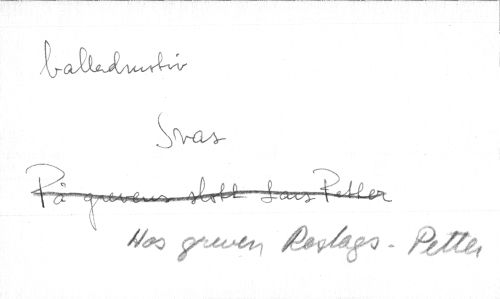 balladmotiv
Svar
På grevens slott Lars Petter
Hos greven Roslags-Petter